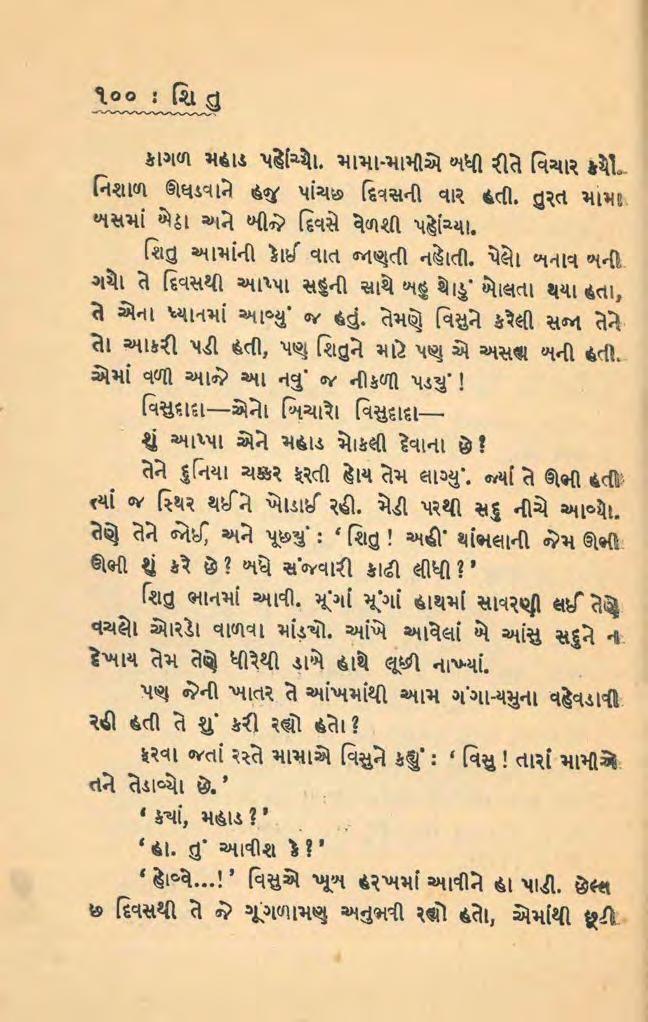 ૧૦૦ : શિ તુ
કાગળ મહાડ પહોંચ્યો. મામા-મામીએ બધી રીતે વિચાર કર્યો.
નિશાળ ઊઘડવાને હજુ પાંચછ દિવસની વાર હતી. તુરત મામા
બસમાં બેઠા અને બીજે દિવસે વેળશી પહોંચ્યા.
શિતુ આમાંની કોઈ વાત જાણતી નહોતી. પેલો બનાવ બની
ગયો તે દિવસથી આપ્પા સહુની સાથે બહુ થોડું બોલતા થયા હતા,
તે એના ધ્યાનમાં આવ્યું જ હતું. તેમણે વિસુને કરેલી સજા તેને
તો આકરી પડી હતી, પણ શિતુને માટે પણ એ અસહ્ય બની હતી.
એમાં વળી આજે આ નવું જ નીકળી પડ્યું !
વિસુદાદા—એનો બિચારો વિસુદાદા—
શું આપ્પા એને મહાડ મોકલી દેવાના છે ?
તેને દુનિયા ચક્કર ફરતી હોય તેમ લાગ્યું. જ્યાં તે ઊભી હતી
ત્યાં જ સ્થિર થઈને ખોડાઈ રહી. મેડી પરથી સદુ નીચે આવ્યો.
તેણે તેને જોઈ, અને પૂછ્યું : ‘ શિતુ ! અહીં થાંભલાની જેમ ઊભી
ઊભી શું કરે છે ? બધે સંજવારી કાઢી લીધી ? ’
શિતુ ભાનમાં આવી. મૂંગાં મૂંગાં હાથમાં સાવરણી લઈ તેણે
વચલો ઓરડો વાળવા માંડ્યો. આંખે આવેલાં બે આંસુ સદુને ન
દેખાય તેમ તેણે ધીરેથી ડાબે હાથે લૂછી નાખ્યાં.
પણ જેની ખાતર તે આંખમાંથી આમ ગંગા-યમુના વહેવડાવી
રહી હતી તે શું કરી રહ્યો હતો ?
ફરવા જતાં રસ્તે મામાએ વિસુને કહ્યું : ‘ વિસુ ! તારાં મામીએ
તને તેડાવ્યો છે. ’
‘ ક્યાં, મહાડ ? ’
‘ હા. તું આવીશ કે ? ’
‘ હોવ્વે...! ’ વિસુએ ખૂબ હરખમાં આવીને હા પાડી. છેલ્લા
છ દિવસથી તે જે ગૂંગળામણ અનુભવી રહ્યો હતો, એમાંથી છૂટી